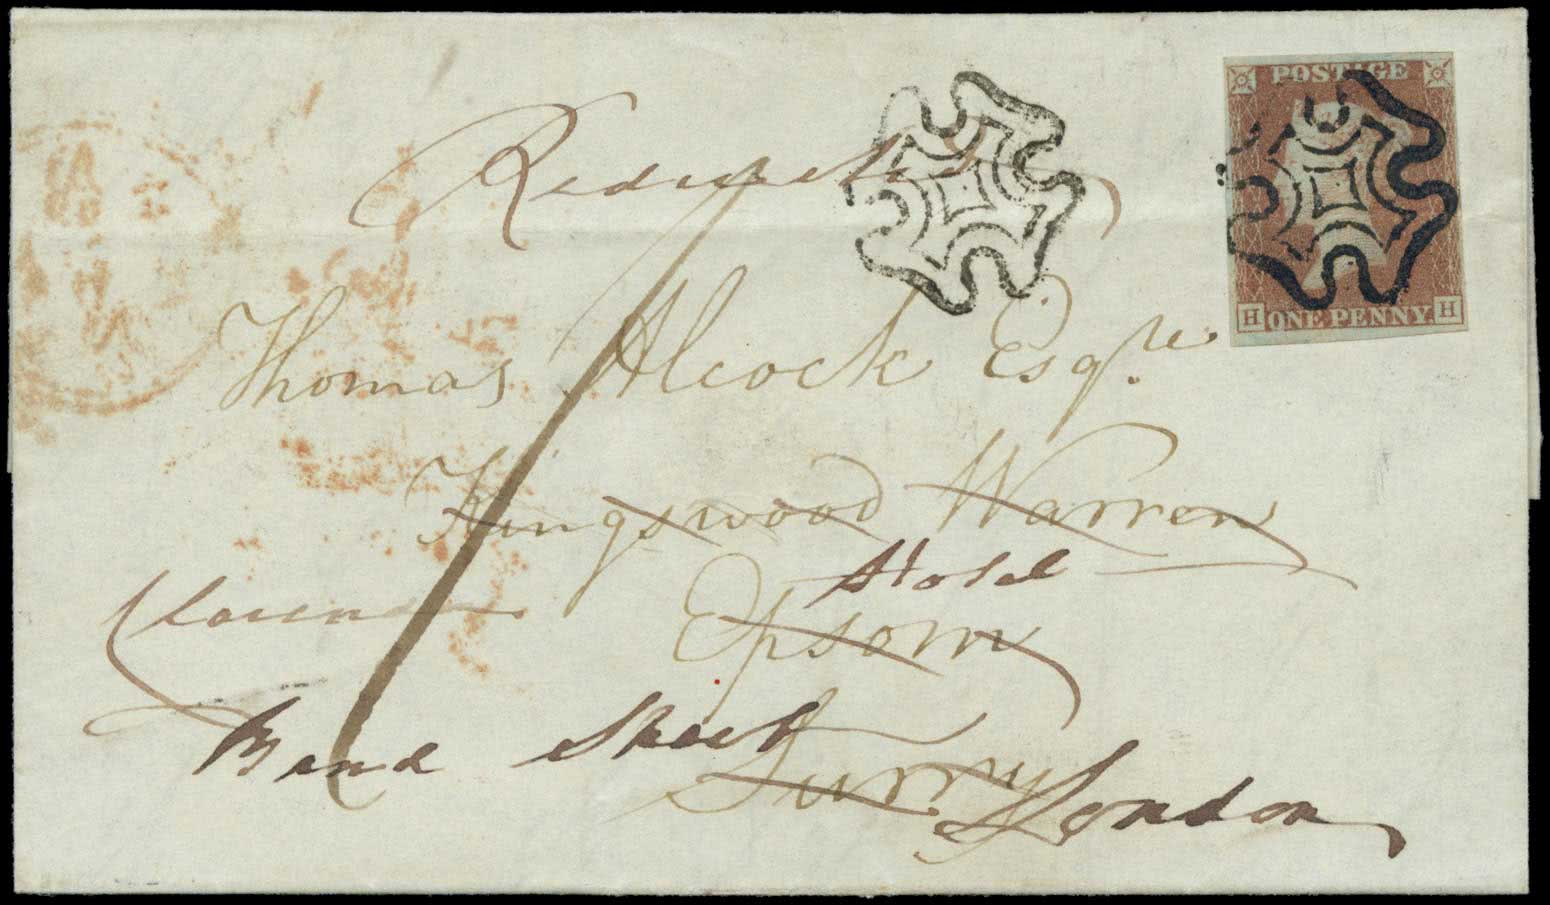 POSTAGE
Redirected
Thomas Alcock Esqre
Kingswood Warren
Hotel
Clarendon
Epsom
Bond Street
Surry
London
H ONE PENNY H